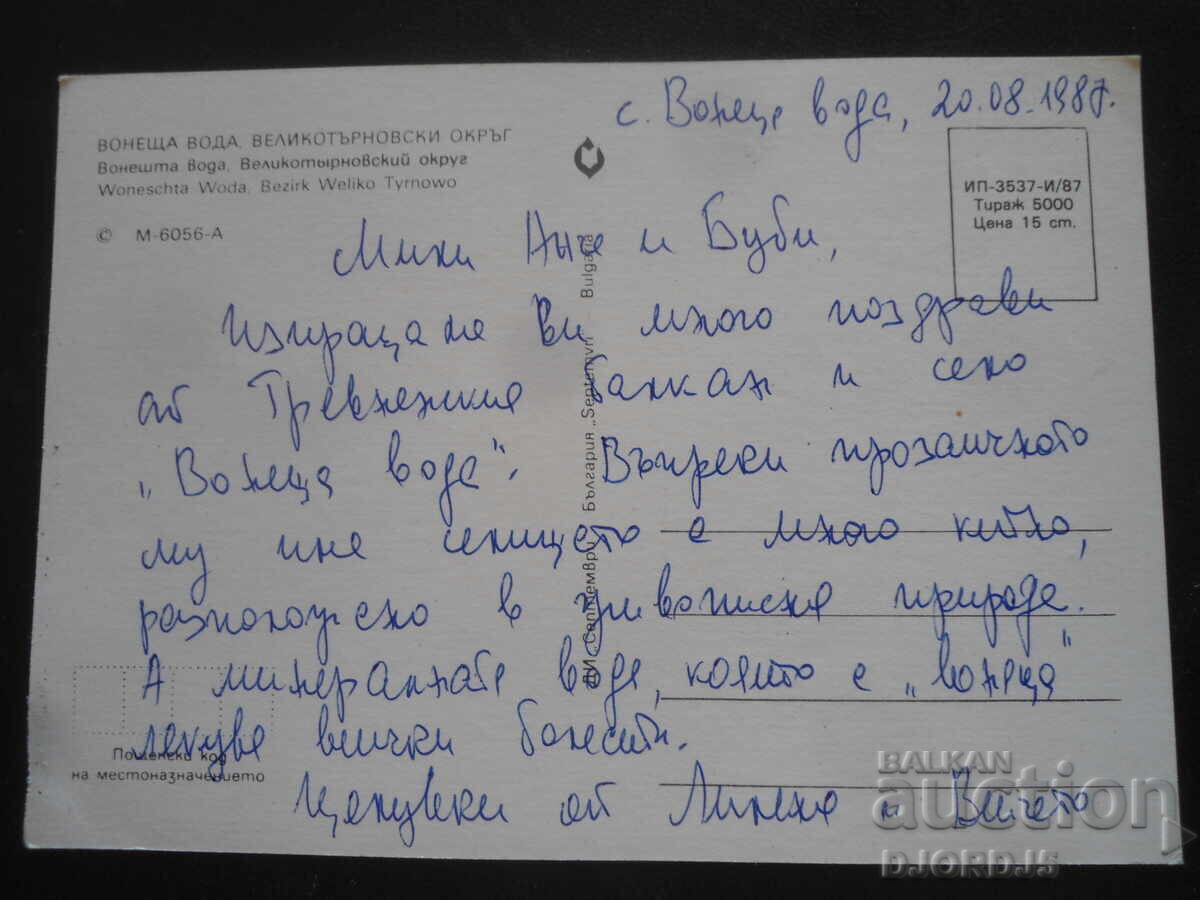 с. Вонеща вода, 20.08.1987.
ВОНЕЩА ВОДА, ВЕЛИКОТЪРНОВСКИ ОКРЪГ
Вонешта вода, Великотырновский округ
Woneschta Woda, Bezirk Weliko Tyrnowo
© М-6056-А
ИП-3537-И/87
Тираж 5000
Цена 15 ст.
Мили и Буби,
Изпращаме Ви много поздрави
от Тревненския балкан и село
"Вонеща вода". Въпреки прозаичното
му име селището е много китно,
разположено в живописна природа.
А минералната вода, която е "вонеща"
лекува всички болести.
Целувки от и
ДИ „Септември" България „Septemvri" Bulgaria
Пощенски код
на местоназначението
BALKAN
auction
DJORDJ5